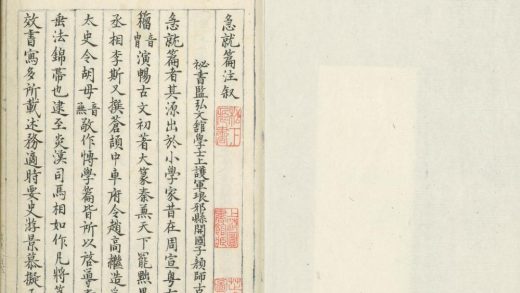 急就篇注叙
祕書監弘文館學士上護軍琅邪縣開國子顏師古
急就篇者其源出於小學家昔在周宣粤有
籀音胄演暢古文初著大篆秦兼天下罷黜異
丞相李斯又撰蒼頡中車府令趙高繼造爰
太史令胡毋音無敬作博學篇皆所以啓導青
垂法錦帶也逮至炎漢司馬相如作凡將篇
效書寫多所載述務適時要史游景慕擬